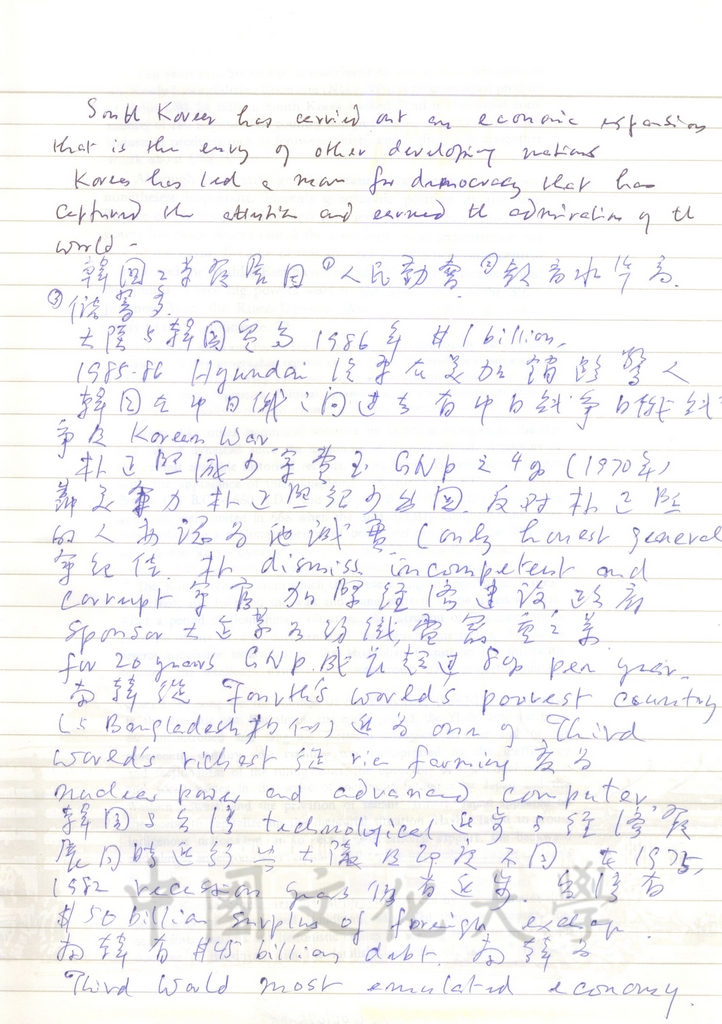 South Korea has carried out an economic expansion
that is the envy of other developing nations
Korea has led a for democracy that has
captured the attention and earned the admiration of the
world -
韓国之發展因①人民勤奮②教育水準高.
③儲蓄多.
大陸与韓国貿易1986年 $1 billion.
1985-86 Hyundai 汽車在美加銷路驚人
韓国在中日俄之间过去有中日战争日俄战
争及 Korean War
朴正熙減少軍費至 GNP 之 4% (1970年)
朴正熙 出国. 反对朴正熙
的人亦認为他誠實 (only honest general
軍紀佳. 朴 dismiss incompetent and
corrupt 軍官 加緊經濟建設 政府
sponsor 大企業 鋼鐵, 電器, 重工業
for 20 years GNP 成長超过 8% per year.
南韓從 Fourth's world's poorest country
(与 Bangladesh 相似) 进为 one of Third
world's richest 從 rice farming 变为
nuclear power and advanced computer
韓国与台灣 technological 进步与經濟發
展同時进行 与大陸 不同. 在 1975,
1982 recession years 仍有进步. 台灣有
$50 billion surplus of foreign exchange.
南韓有 $45 billion debt. 南韓为
Third World most emulated economy.
中國文化大學